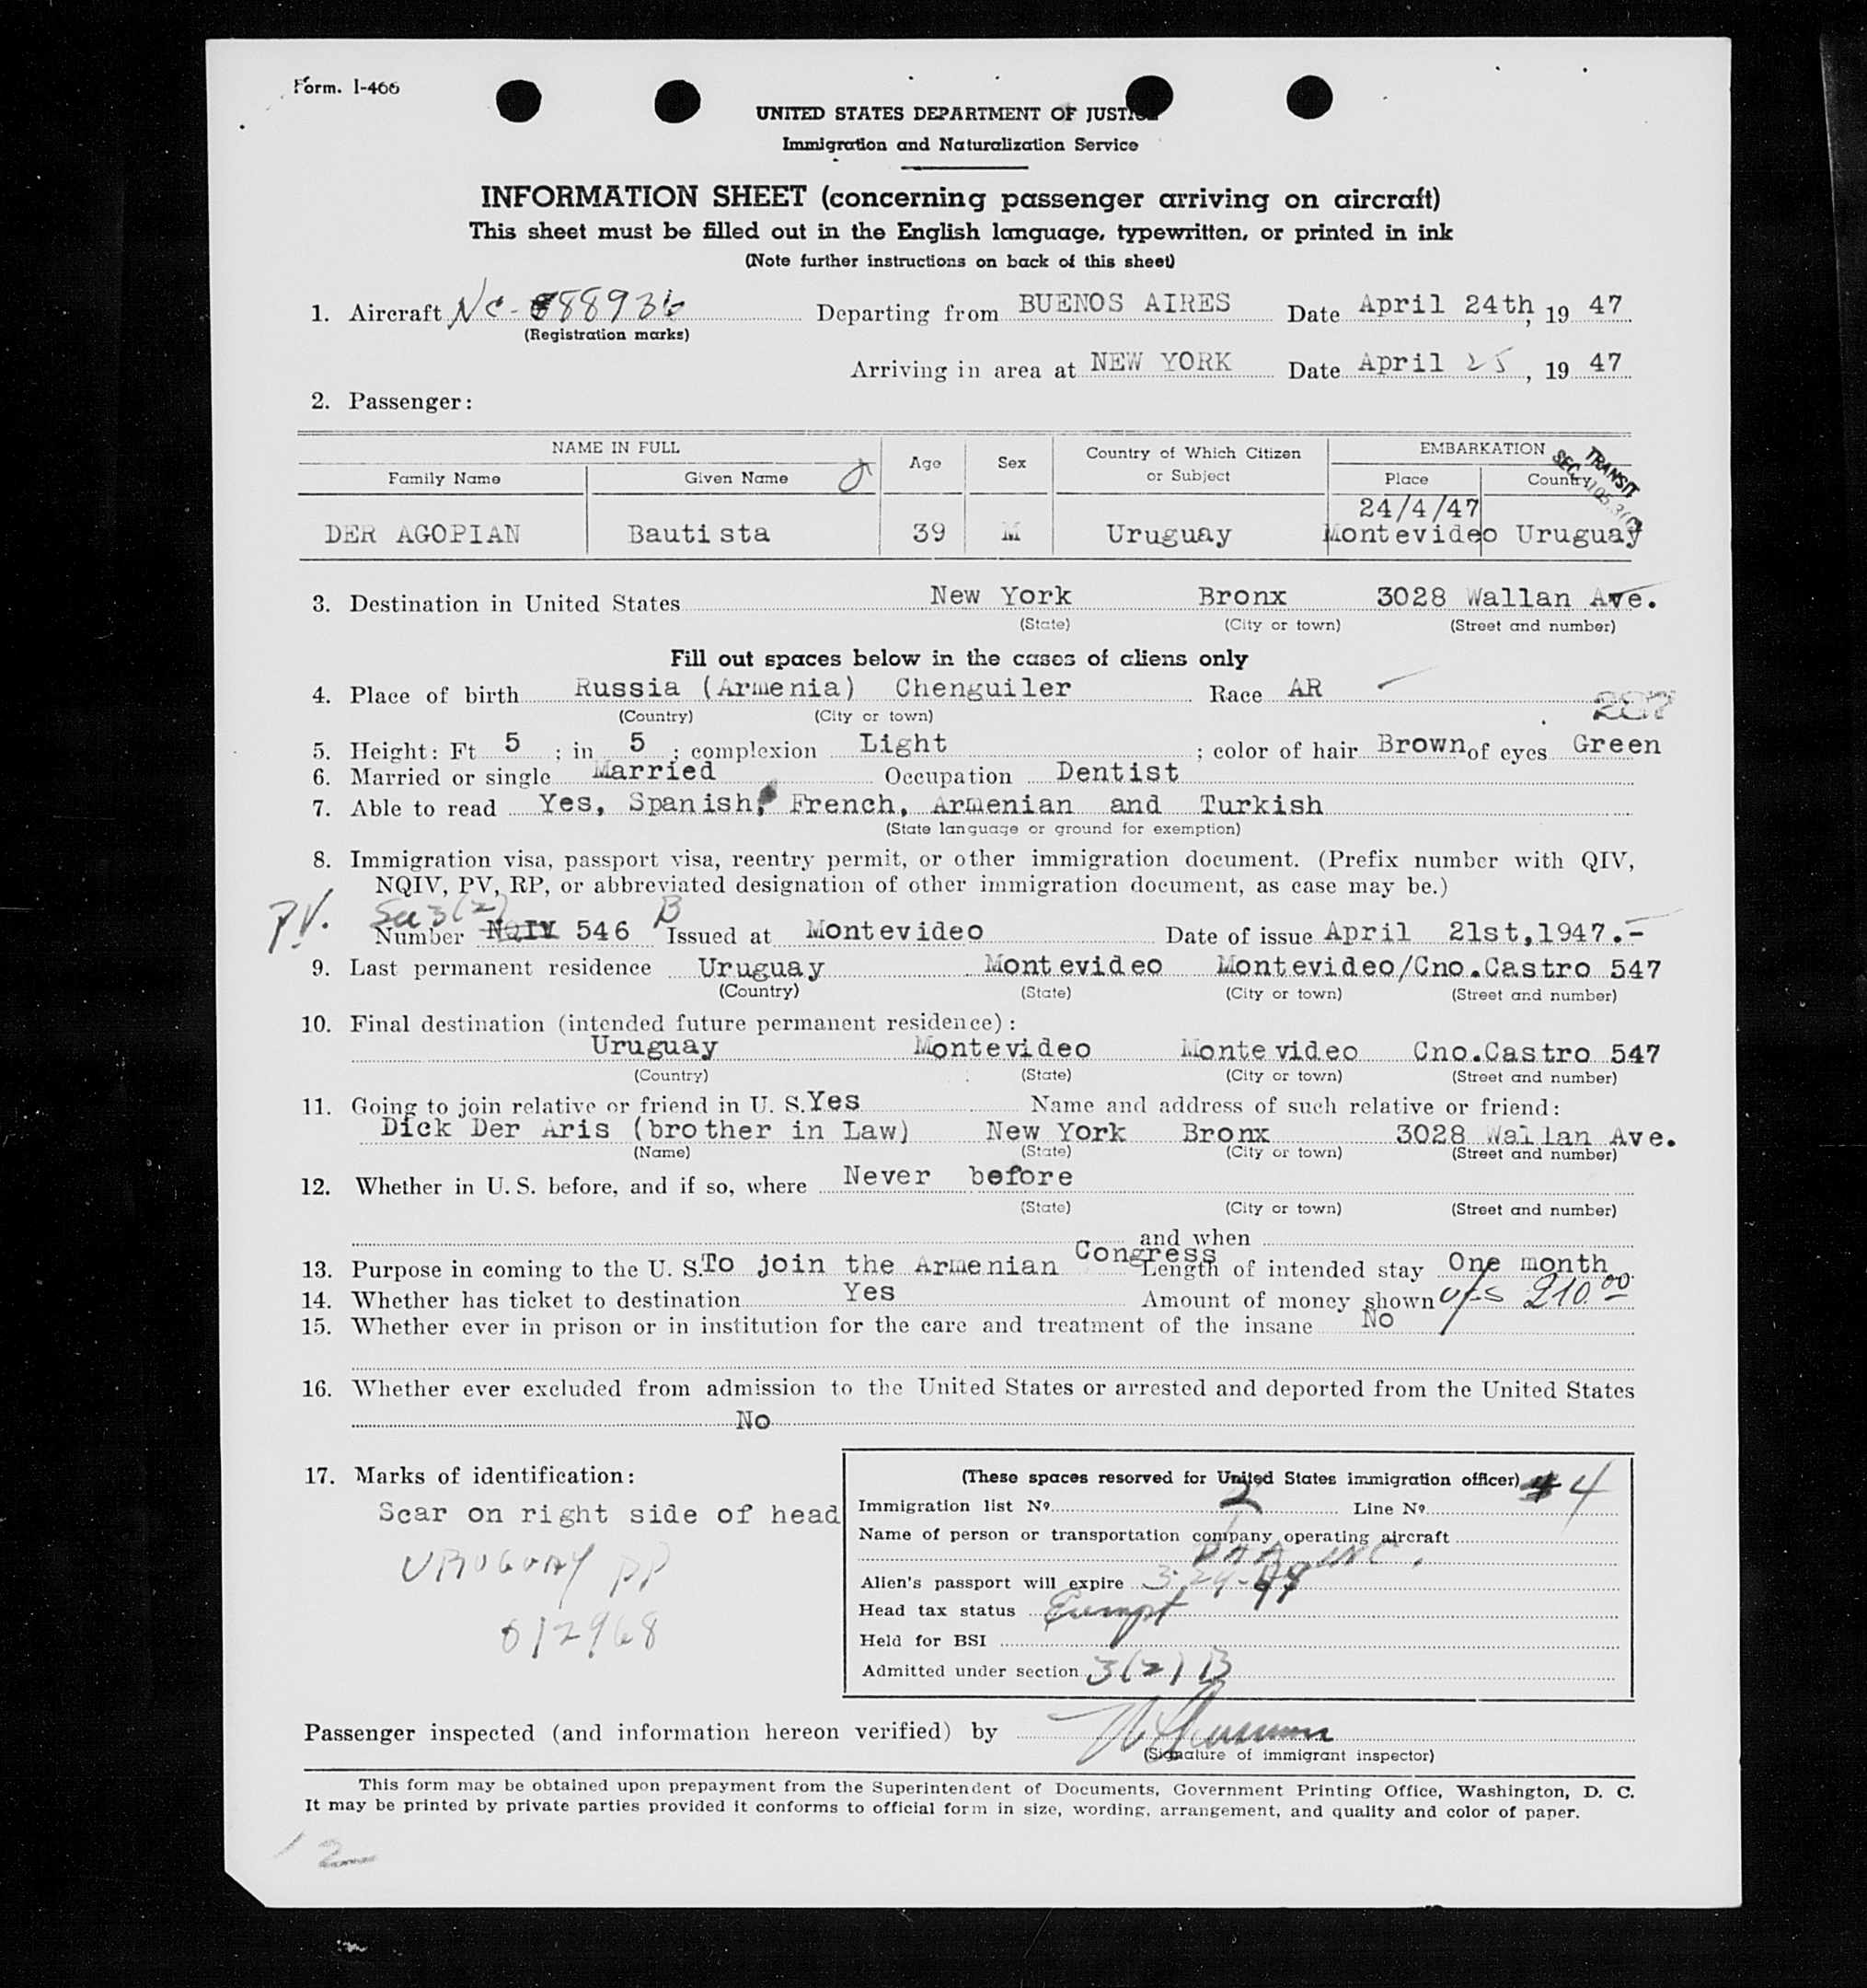 Form. I-466
UNITED STATES DEPARTMENT OF JUSTICE
Immigration and Naturalization Service
INFORMATION SHEET (concerning passenger arriving on aircraft)
This sheet must be filled out in the English language, typewritten, or printed in ink
(Note further instructions on back of this sheet)
1. Aircraft NC-88936 Departing from BUENOS AIRES Date April 24th, 19 47
(Registration marks)
Arriving in area at NEW YORK Date April 25, 19 47
2. Passenger:
NAME IN FULL Age Sex Country of Which Citizen or Subject EMBARKATION
Family Name Given Name Place Country
TRANSIT
SEC.
24/4/47
DER AGOPIAN Bautista 39 M Uruguay Montevideo Uruguay
3. Destination in United States New York Bronx 3028 Wallan Ave.
(State) (City or town) (Street and number)
Fill out spaces below in the cases of aliens only
4. Place of birth Russia (Armenia) Chenguiler Race AR
(Country) (City or town)
5. Height: Ft 5 ; in 5 ; complexion Light ; color of hair Brown of eyes Green
6. Married or single Married Occupation Dentist
7. Able to read Yes, Spanish, French, Armenian and Turkish
(State language or ground for exemption)
8. Immigration visa, passport visa, reentry permit, or other immigration document. (Prefix number with QIV,
NQIV, PV, RP, or abbreviated designation of other immigration document, as case may be.)
P.V. Sec 3(2) B
Number NQIV 546 Issued at Montevideo Date of issue April 21st,1947.-
9. Last permanent residence Uruguay Montevideo Montevideo/Cno.Castro 547
(Country) (State) (City or town) (Street and number)
10. Final destination (intended future permanent residence):
Uruguay Montevideo Montevideo Cno.Castro 547
(Country) (State) (City or town) (Street and number)
11. Going to join relative or friend in U. S. Yes Name and address of such relative or friend:
Dick Der Aris (brother in Law) New York Bronx 3028 Wallan Ave.
(Name) (State) (City or town) (Street and number)
12. Whether in U. S. before, and if so, where Never before
(State) (City or town) (Street and number)
and when
13. Purpose in coming to the U. S. To join the Armenian Congress Length of intended stay One month
14. Whether has ticket to destination Yes Amount of money shown 210.00
15. Whether ever in prison or in institution for the care and treatment of the insane No
16. Whether ever excluded from admission to the United States or arrested and deported from the United States
No
17. Marks of identification:
Scar on right side of head
URUGUAY PP
012968
(These spaces reserved for United States immigration officer)
Immigration list No. 2 Line No. 4
Name of person or transportation company operating aircraft
PAA INC.
Alien's passport will expire
Head tax status Exempt
Held for BSI
Admitted under section 3(2) B
Passenger inspected (and information hereon verified) by
(Signature of immigrant inspector)
This form may be obtained upon prepayment from the Superintendent of Documents, Government Printing Office, Washington, D. C.
It may be printed by private parties provided it conforms to official form in size, wording, arrangement, and quality and color of paper.
12